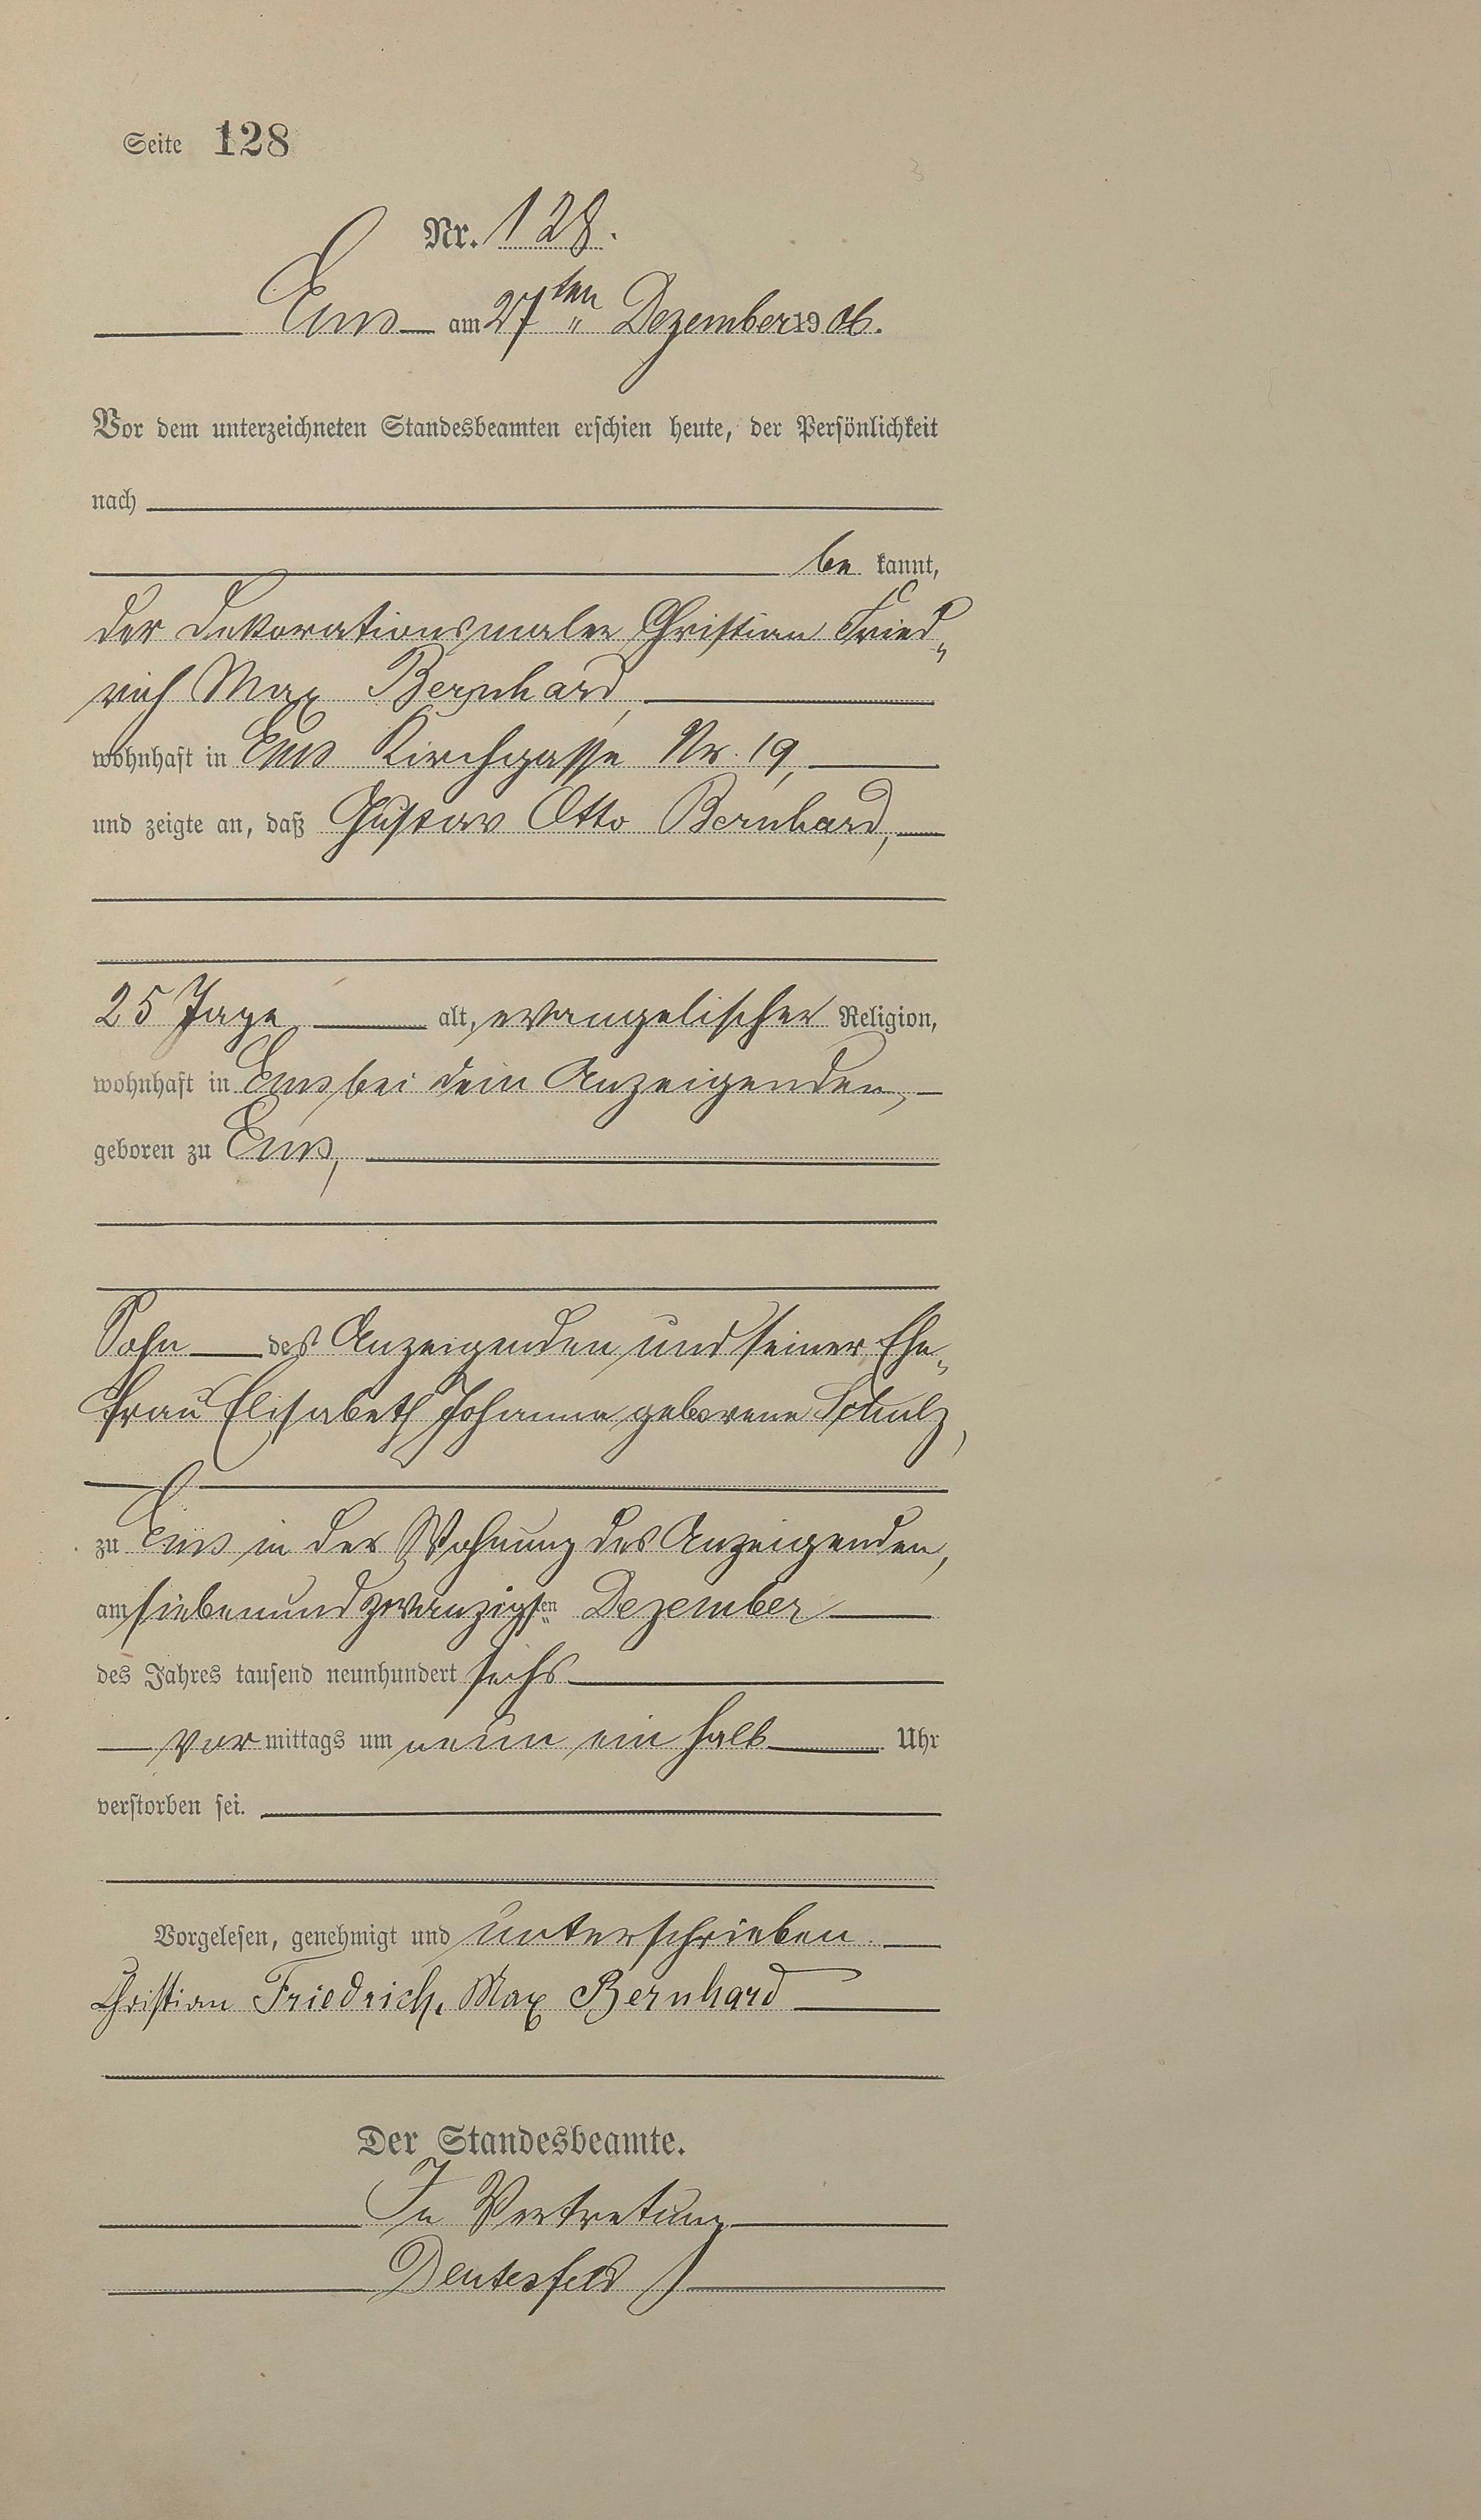 Seite 128
Nr. 128.
Ems am 27ten Dezember 1906.
Vor dem unterzeichneten Standesbeamten erschien heute, der Persönlichkeit
nach
be kannt,
der Dekorationsmaler Christian Fried„
rich Max Bernhard,
wohnhaft in Ems Kirchgasse Nr. 19,
und zeigte an, daß Gustav Otto Bernhard,
25 Tage alt, evangelischer Religion,
wohnhaft in Ems bei dem Anzeigenden,
geboren zu Ems,
Sohn des Anzeigenden und seiner Ehe„
frau Elisabeth Johanna geborene Schulz,
zu Ems in der Wohnung des Anzeigenden,
am siebenundzwanzigsten Dezember
des Jahres tausend neunhundert sechs
vor mittags um neun ein halb Uhr
verstorben sei.
Vorgelesen, genehmigt und unterschrieben.
Christian Friedrich Max Bernhard
Der Standesbeamte.
In Vertretung
Deutesfeld